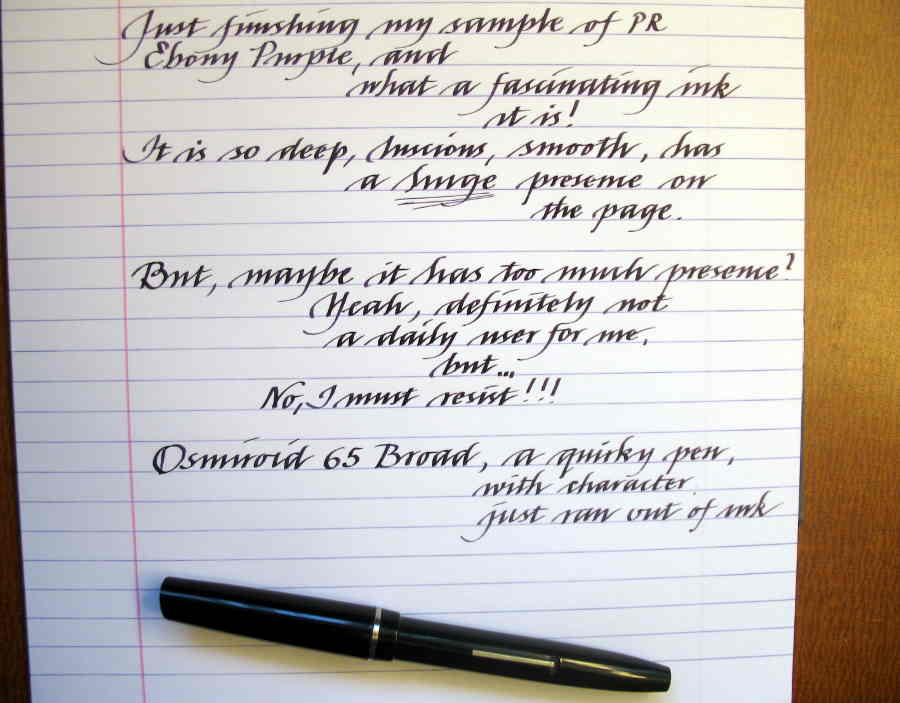 Just finishing my sample of PR
Ebony Purple, and
what a fascinating ink
it is!
It is so deep, luscious, smooth, has
a huge presence on
the page.
But, maybe it has too much presence?
Yeah, definitely not
a daily user for me.
but...
No, I must resist!!!
Osmiroid 65 Broad, a quirky pen,
with character.
just ran out of ink